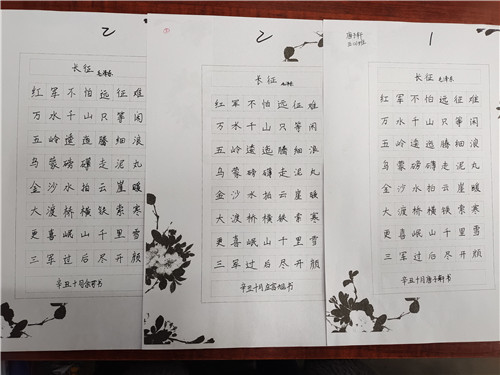 2
长征 毛泽东
红军不怕远征难
万水千山只等闲
五岭逶迤腾细浪
乌蒙磅礴走泥丸
金沙水拍云崖暖
大渡桥横铁索寒
更喜岷山千里雪
三军过后尽开颜
辛丑十月
书
2
长征 毛泽东
红军不怕远征难
万水千山只等闲
五岭逶迤腾细浪
乌蒙磅礴走泥丸
金沙水拍云崖暖
大渡桥横铁索寒
更喜岷山千里雪
三军过后尽开颜
辛丑十月
书
1
长征 毛泽东
红军不怕远征难
万水千山只等闲
五岭逶迤腾细浪
乌蒙磅礴走泥丸
金沙水拍云崖暖
大渡桥横铁索寒
更喜岷山千里雪
三军过后尽开颜
辛丑十月唐子轩书